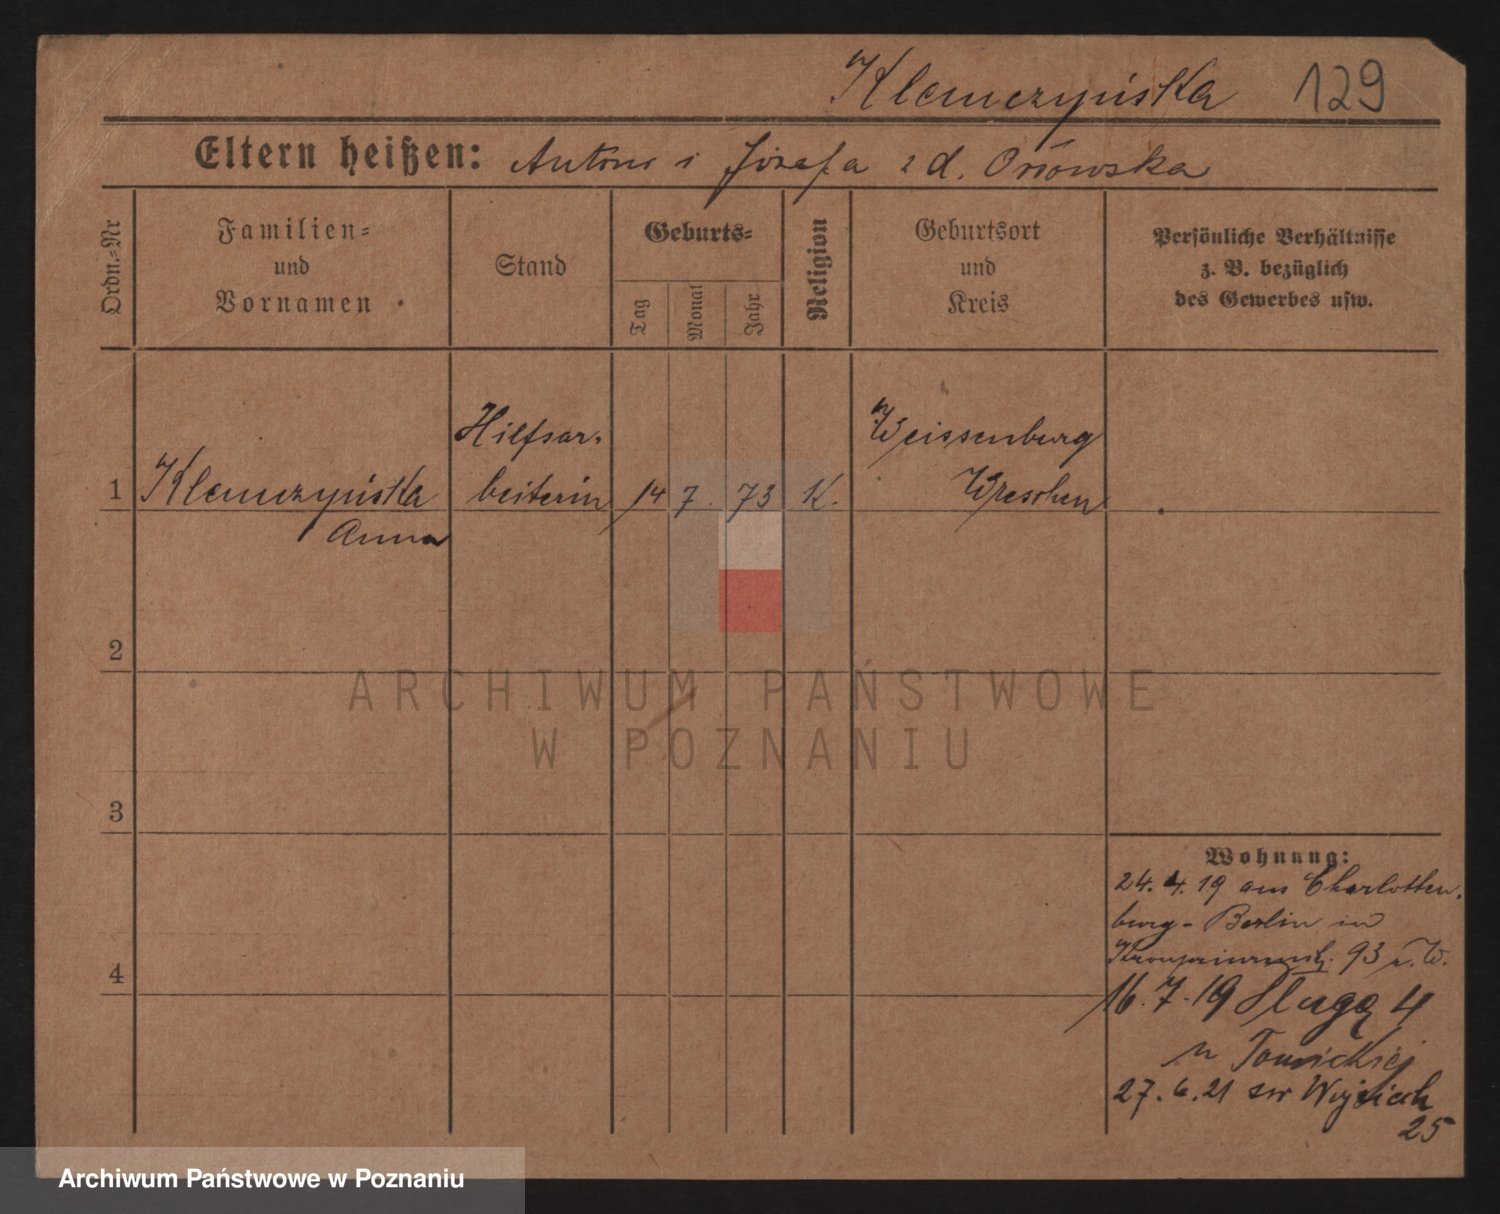 Klemczyńska 129
Eltern heißen: Antoni i Józefa z d. Orłowska
Ordn.-Nr
Familien-
und
Vornamen
Stand
Geburts-
Tag
Monat
Jahr
Religion
Geburtsort
und
Kreis
Persönliche Verhältnisse
z. B. bezüglich
des Gewerbes usw.
1 Klemczyńska
Anna
Hilfsar-
beiterin
14 7. 73 K.
Weissenburg
Wreschen
2
3
4
Wohnung:
24. 4. 19 aus Charlotten-
burg-Berlin in
Kronprinzenstr. 93
16. 7. 19 Długa 4
u Tomickiej
27. 6. 21 św Wojciech
25
ARCHIWUM PAŃSTWOWE
W POZNANIU
Archiwum Państwowe w Poznaniu